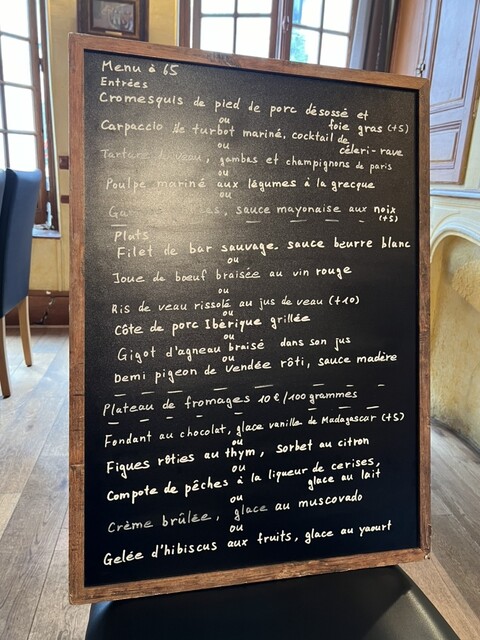 Menu à 65
Entrées
Cromesquis de pied de porc désossé et
foie gras (+5)
ou
Carpaccio de turbot mariné, cocktail de
céleri-rave
ou
Tartare de veau, gambas et champignons de paris
ou
Poulpe mariné aux légumes à la grecque
ou
sauce mayonaise aux noix
(+5)
Plats
Filet de bar sauvage. sauce beurre blanc
ou
Joue de bœuf braisée au vin rouge
ou
Ris de veau rissolé au jus de veau (+10)
ou
Côte de porc Ibérique grillée
ou
Gigot d'agneau braisé dans son jus
ou
Demi pigeon de Vendée rôti, sauce madère
Plateau de fromages 10€/100 grammes
Fondant au chocolat, glace vanille de Madagascar (+5)
ou
Figues rôties au thym, sorbet au citron
ou
Compote de pêches à la liqueur de cerises,
glace au lait
ou
Crème brûlée, glace au muscovado
ou
Gelée d'hibiscus aux fruits, glace au yaourt